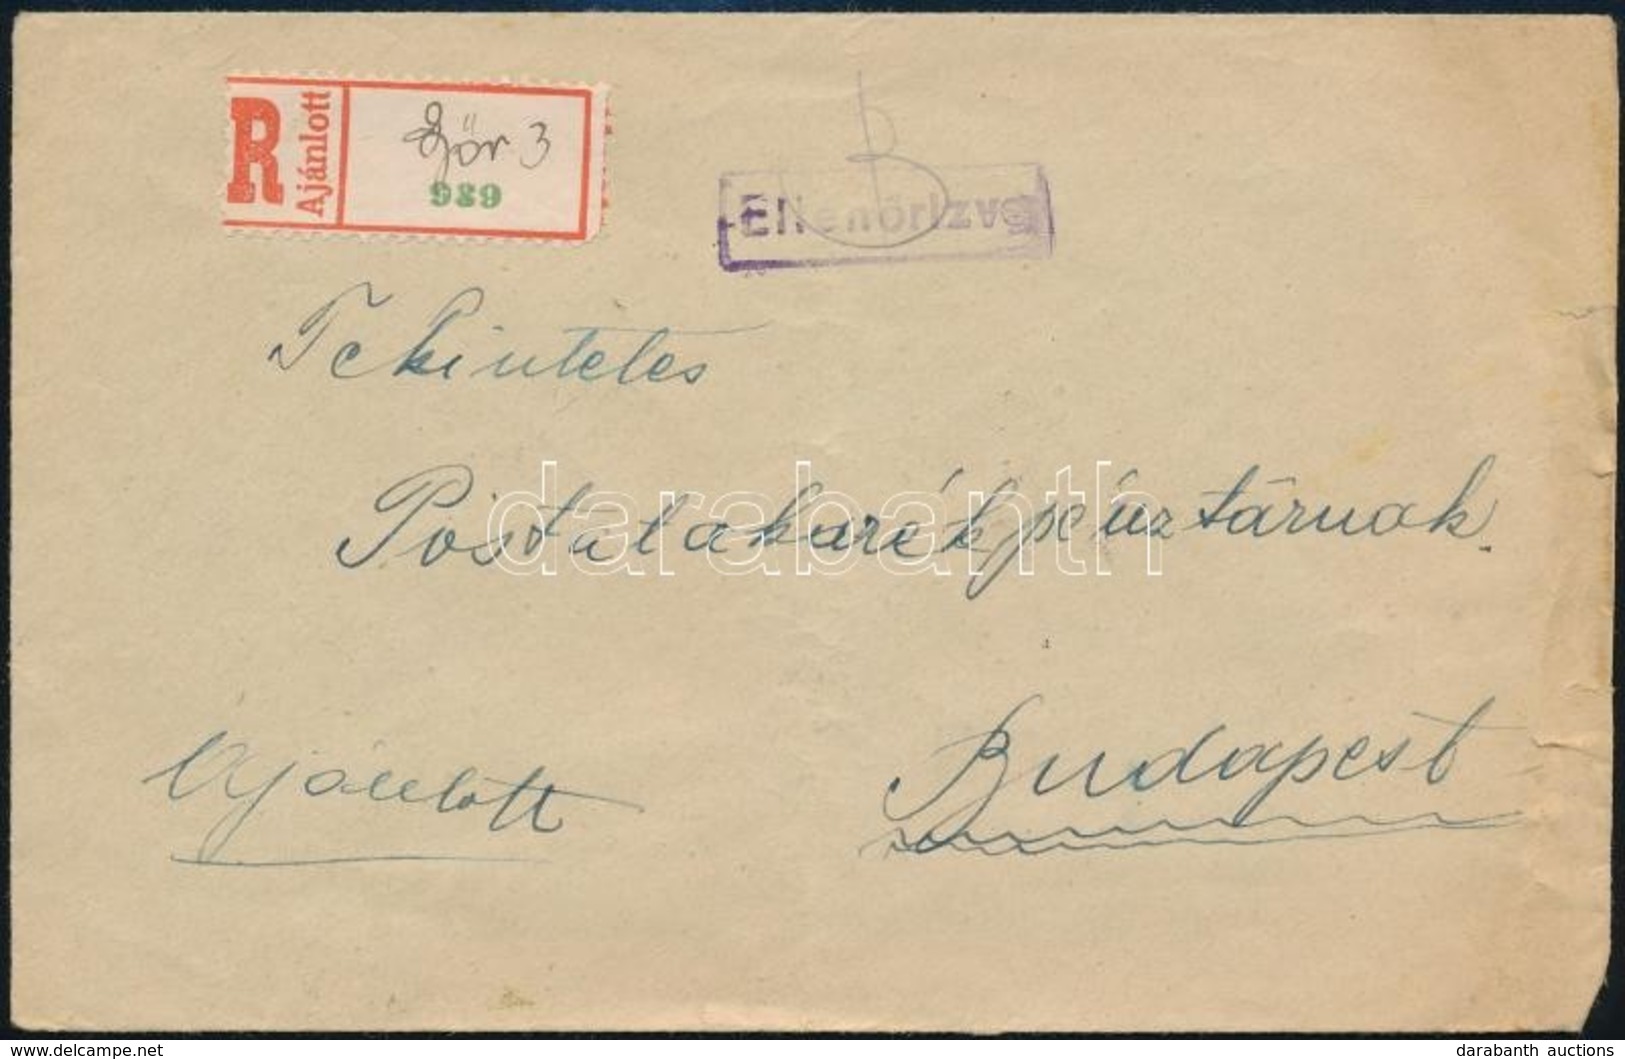 R Ajánlott
Győr 3
986
Ellenőrizve
Tekintetes
Postatakarékpénztárnak
darabanth
Ajánlott
Budapest
delcampe.net
darabanth auctions